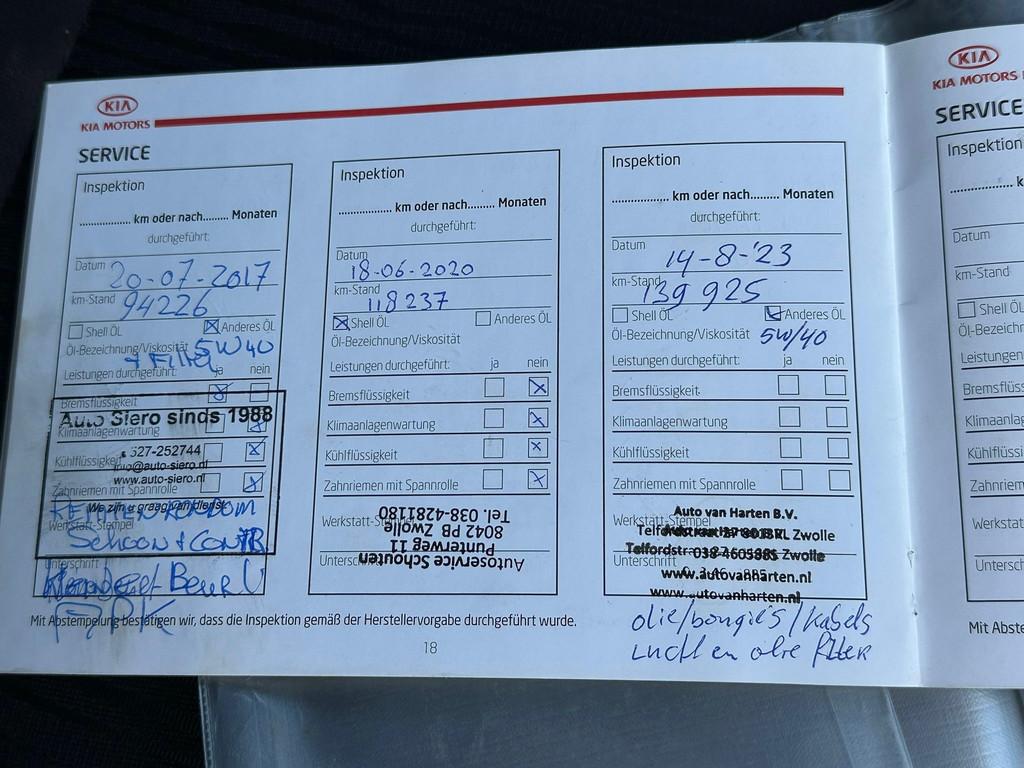 KIA
KIA MOTORS
SERVICE
Inspektion
.................. km oder nach......... Monaten
durchgeführt:
Datum 20-07-2017
km-Stand 94226
Shell ÖL Anderes ÖL
Öl-Bezeichnung/Viskosität 5W40
+ Filter
Leistungen durchgeführt: ja nein
Bremsflüssigkeit
Auto Siero sinds 1988
Klimaanlagenwartung
527-252744
Kühlflüssigkeit
info@auto-siero.nl
www.auto-siero.nl
Zahnriemen mit Spannrolle
We zijn u graag van dienst
REMMEN RONDOM
Werkstatt-Stempel
SCHOON + CONTR
Unterschrift
APK
Inspektion
.................. km oder nach......... Monaten
durchgeführt:
Datum 18-06-2020
km-Stand 118237
Shell ÖL Anderes ÖL
Öl-Bezeichnung/Viskosität
Leistungen durchgeführt: ja nein
Bremsflüssigkeit
Klimaanlagenwartung
Kühlflüssigkeit
Zahnriemen mit Spannrolle
Werkstatt-Stempel
Unterschrift
Autoservice Schouten
Punterweg 11
8042 PB Zwolle
Tel. 038-4281180
Inspektion
.................. km oder nach......... Monaten
durchgeführt:
Datum 14-8-'23
km-Stand 139 925
Shell ÖL Anderes ÖL
Öl-Bezeichnung/Viskosität 5W/40
Leistungen durchgeführt: ja nein
Bremsflüssigkeit
Klimaanlagenwartung
Kühlflüssigkeit
Zahnriemen mit Spannrolle
Auto van Harten B.V.
Werkstatt-Stempel
Zwolle
Telfordstr. 038-4605885 Zwolle
Unterschrift
www.autovanharten.nl
www.autovanharten.nl
olie/bougie's/kabels
lucht en olie filter
Mit Abstempelung bestätigen wir, dass die Inspektion gemäß der Herstellervorgabe durchgeführt wurde.
18
KIA
KIA MOTORS
SERVICE
Inspektion
.................. k
Datum
km-Stand
Shell ÖL
Öl-Bezeichn
Leistungen
Bremsflüss
Klimaanlag
Kühlflüssi
Zahnriem
Werkstat
Untersch
Mit Abste